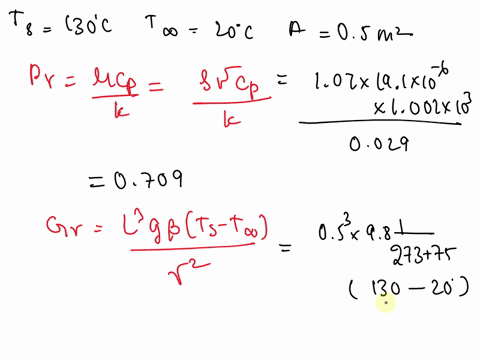 Ts = 130°C T∞ = 20°C A = 0.5 m2
Pr = μCp/k = ρνCp/k = 1.02×19.1×10^-6 × 1.002×10^3 / 0.029
= 0.709
Gr = L^3 gβ(Ts-T∞)/ν^2 = 0.5^3 × 9.81/273+75
(130 - 20°)